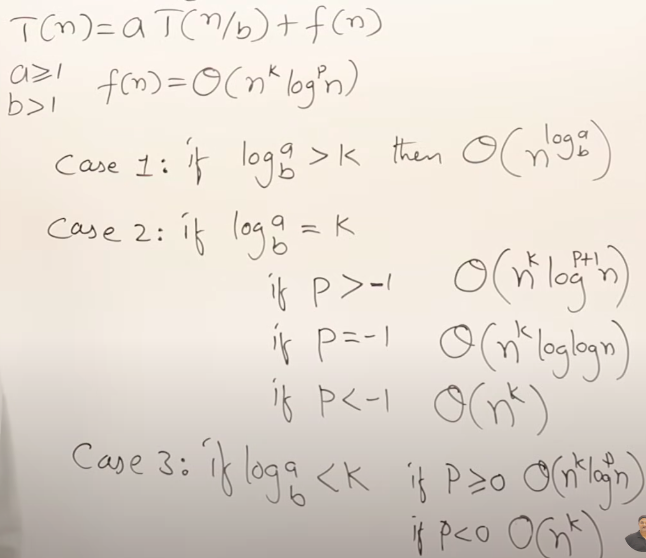 T(n) = a T(n/b) + f(n)
a≥1
b>1 f(n) = O(n^k log^p n)
Case 1: if log_b^a > k then O(n^{log_b^a})
Case 2: if log_b^a = k
if P > -1 O(n^k log^{P+1} n)
if P = -1 O(n^k log log n)
if P < -1 O(n^k)
Case 3: if log_b^a < k if P≥0 O(n^k log^p n)
if P<0 O(n^k)